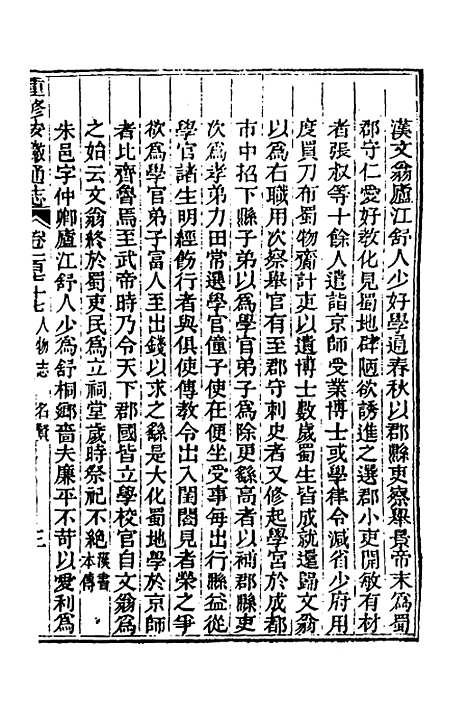 漢文翁廬江舒人少好學通春秋以郡縣吏察舉景帝末爲蜀
郡守仁愛好敎化見蜀地僻陋欲誘進之選郡小吏開敏有材
者張叔等十餘人遣詣京師受業博士或學律令減省少府用
度買刀布蜀物齎計吏以遺博士數歲蜀生皆成就還歸文翁
以爲右職用次察舉官有至郡守刺史者又修起學宮於成都
市中招下縣子弟以爲學官弟子爲除更繇高者以補郡縣吏
次爲孝弟力田常選學官僮子使在便坐受事每出行縣益從
學官諸生明經飭行者與俱使傳敎令出入閨閤見者榮之爭
欲爲學官弟子富人至出錢以求之繇是大化蜀地學於京師
者比齊魯焉至武帝時乃令天下郡國皆立學校官自文翁爲
之始云文翁終於蜀吏民爲立祠堂歲時祭祀不絶漢書本傳
朱邑字仲卿廬江舒人少爲舒桐鄉嗇夫廉平不苛以愛利爲
重修安徽通志 卷二百十七人物志 名賢 三